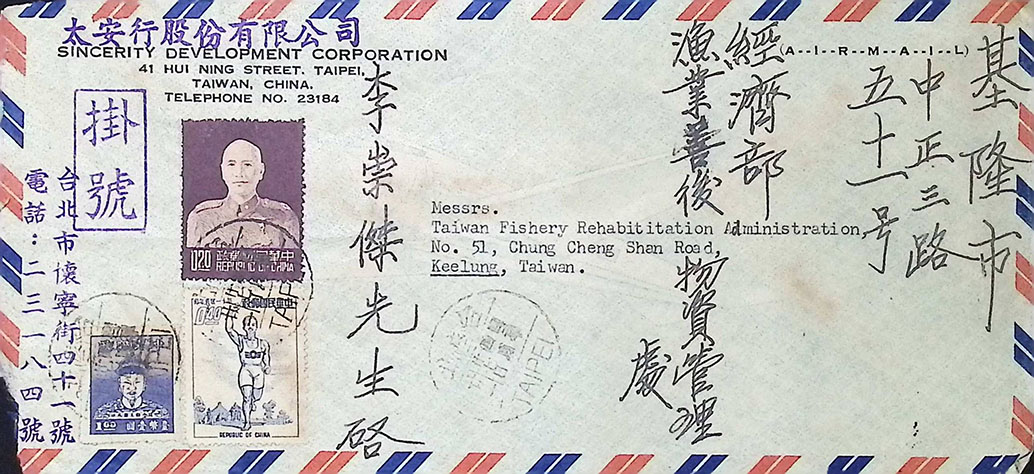 太安行股份有限公司
SINCERITY DEVELOPMENT CORPORATION
41 HUI NING STREET. TAIPEI,
TAIWAN, CHINA.
TELEPHONE NO. 23184
掛號
台北市懷寧街四十一號
電話：二三一八四號
(A--I--R--M--A--I--L)
基隆市
中正三路
五十一号
經濟部
漁業善後物資管理
處
李崇傑先生啓
Messrs.
Taiwan Fishery Rehabititation Administration,
No. 51, Chung Cheng Shan Road,
Keelung, Taiwan.
0.20
REPUBLIC OF CHINA
0.40
REPUBLIC OF CHINA
1.00
TAIPEI
TAIPEI